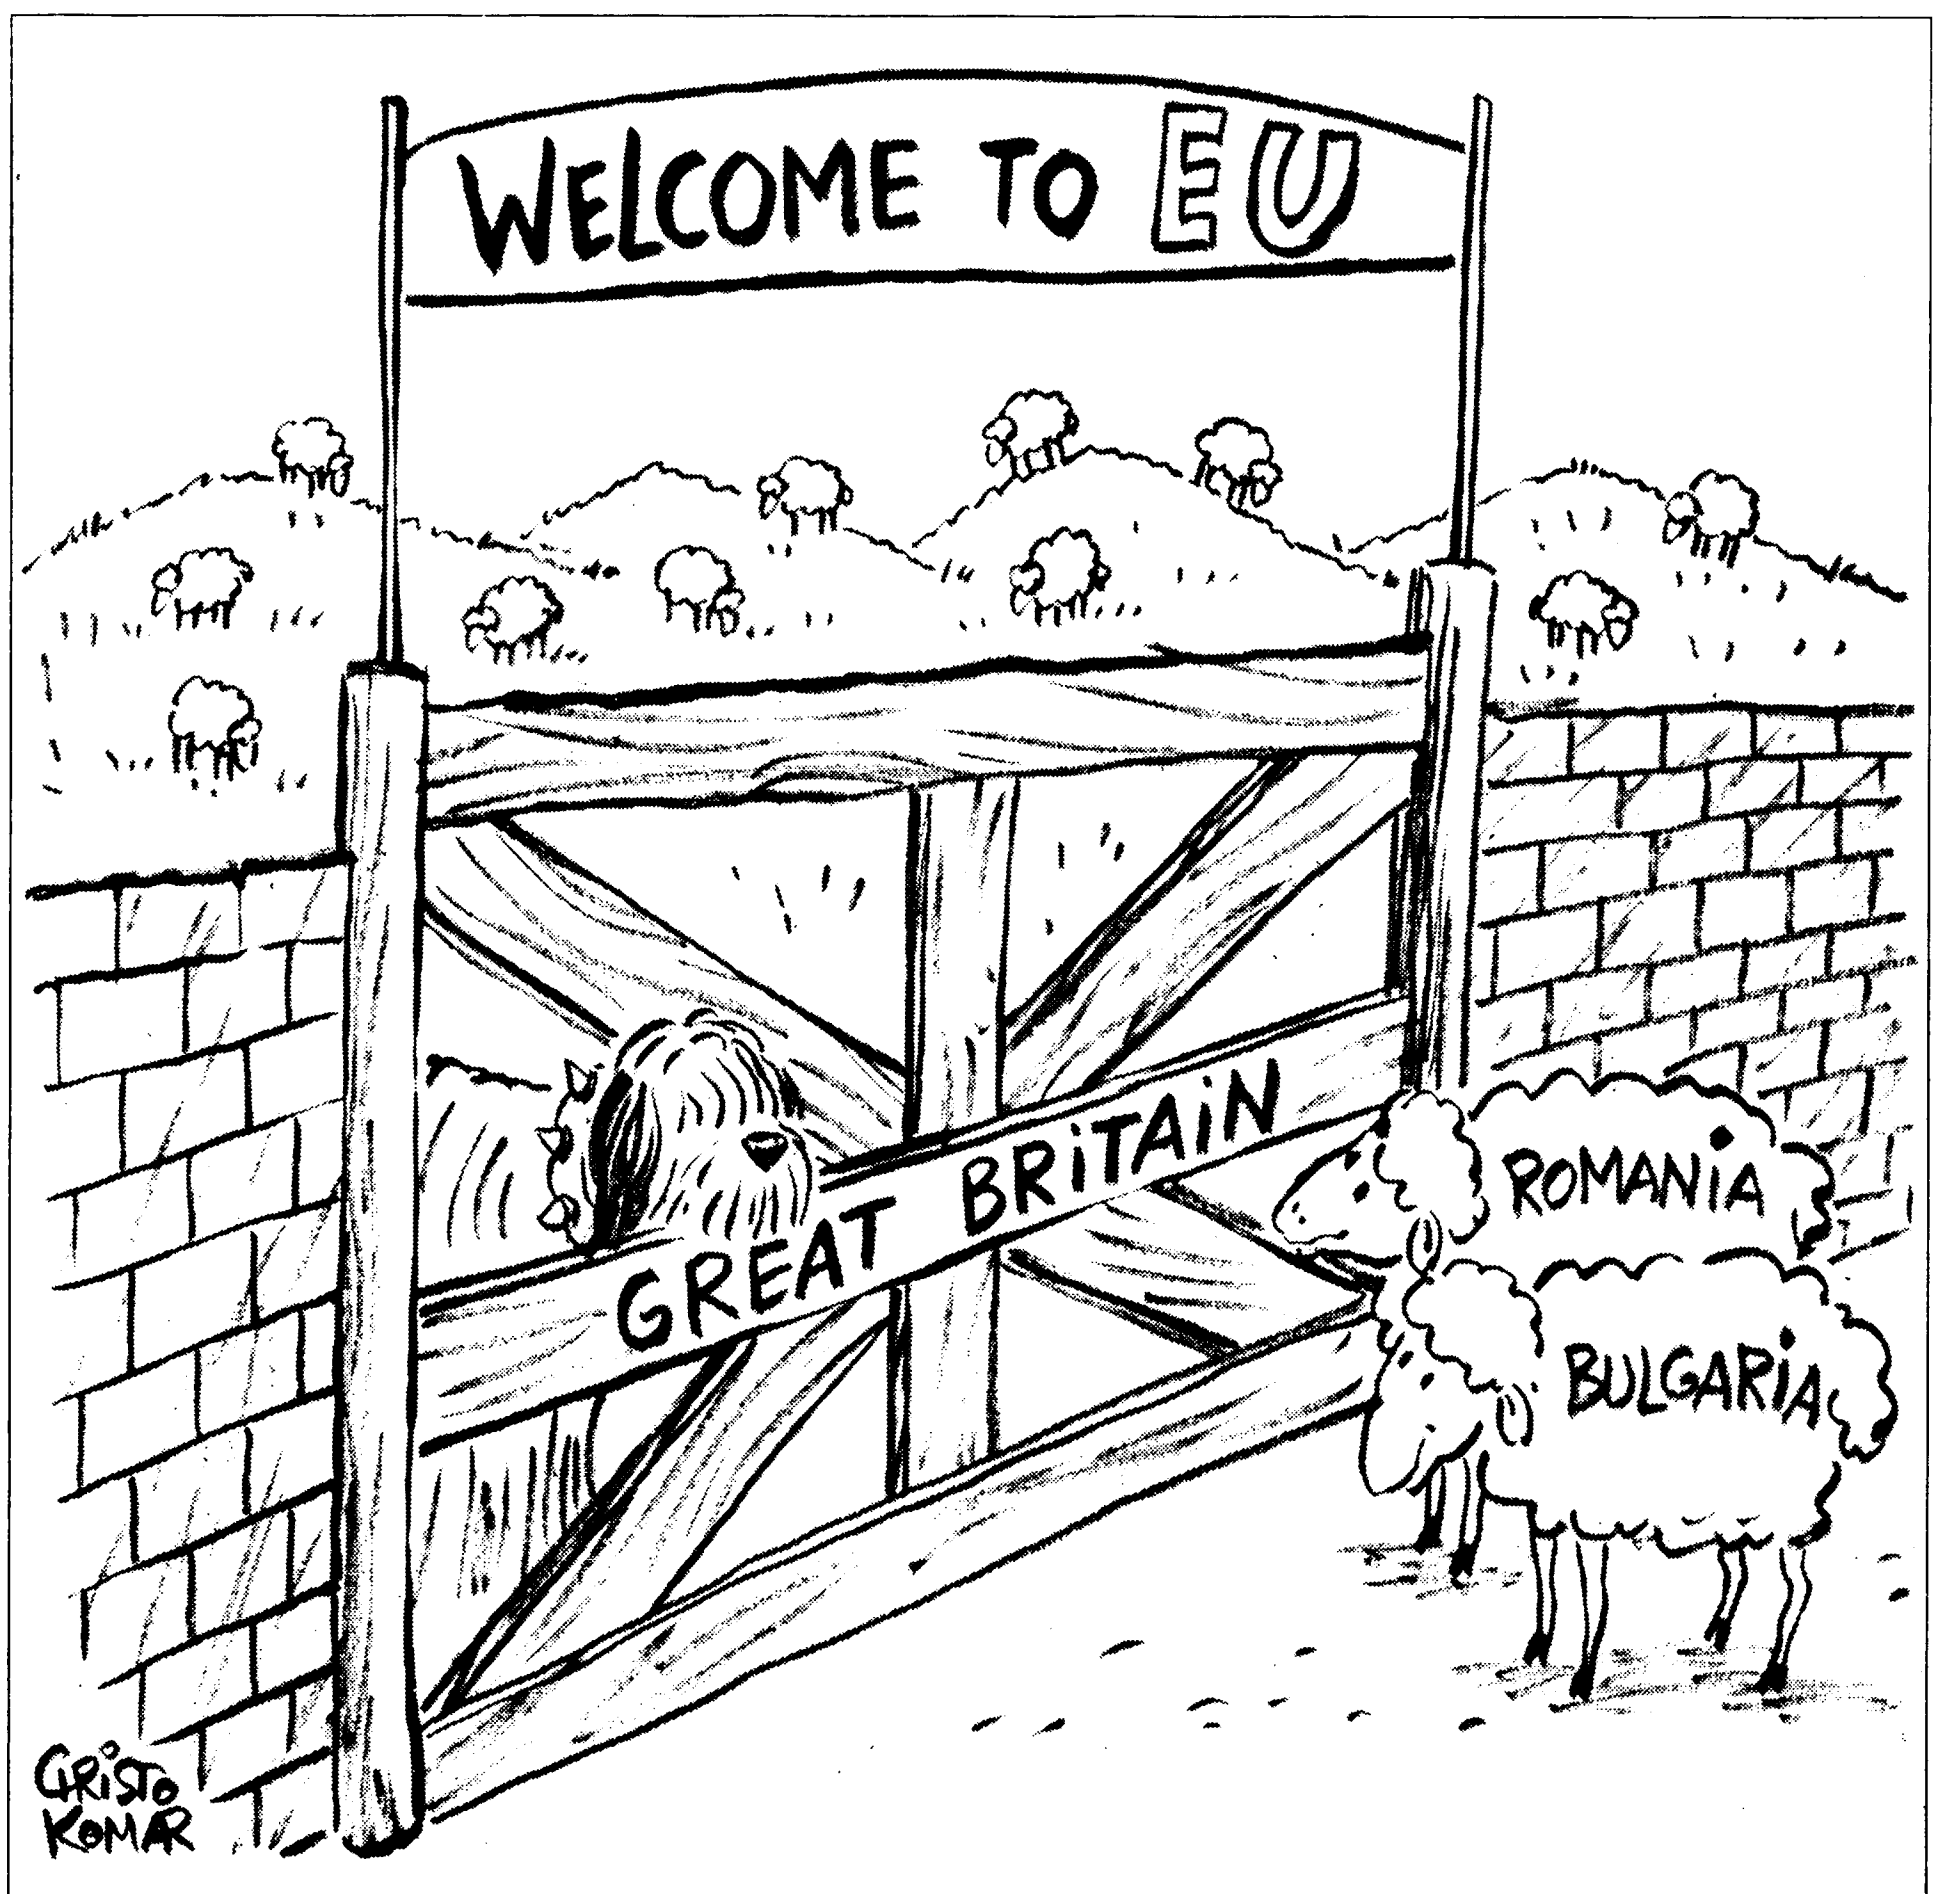 WELCOME TO EU
GREAT BRITAIN
ROMANIA
BULGARIA
CHRISTO
KOMAR